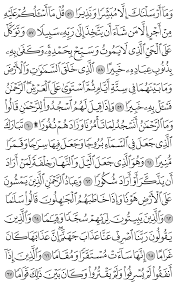 وَمَآ أَرْسَلْنَٰكَ إِلَّا مُبَشِّرًا وَنَذِيرًا ٥٦ قُلْ مَآ أَسْـَٔلُكُمْ عَلَيْهِ
مِنْ أَجْرٍ إِلَّا مَن شَآءَ أَن يَتَّخِذَ إِلَىٰ رَبِّهِۦ سَبِيلًا ٥٧ وَتَوَكَّلْ
عَلَى ٱلْحَىِّ ٱلَّذِى لَا يَمُوتُ وَسَبِّحْ بِحَمْدِهِۦ وَكَفَىٰ بِهِۦ
بِذُنُوبِ عِبَادِهِۦ خَبِيرًا ٥٨ ٱلَّذِى خَلَقَ ٱلسَّمَٰوَٰتِ وَٱلْأَرْضَ
وَمَا بَيْنَهُمَا فِى سِتَّةِ أَيَّامٍ ثُمَّ ٱسْتَوَىٰ عَلَى ٱلْعَرْشِ ٱلرَّحْمَٰنُ
فَسْـَٔلْ بِهِۦ خَبِيرًا ٥٩ وَإِذَا قِيلَ لَهُمُ ٱسْجُدُوا۟ لِلرَّحْمَٰنِ قَالُوا۟
وَمَا ٱلرَّحْمَٰنُ أَنَسْجُدُ لِمَا تَأْمُرُنَا وَزَادَهُمْ نُفُورًا ۩ ٦٠ تَبَارَكَ
ٱلَّذِى جَعَلَ فِى ٱلسَّمَآءِ بُرُوجًا وَجَعَلَ فِيهَا سِرَٰجًا وَقَمَرًا
مُّنِيرًا ٦١ وَهُوَ ٱلَّذِى جَعَلَ ٱلَّيْلَ وَٱلنَّهَارَ خِلْفَةً لِّمَنْ أَرَادَ
أَن يَذَّكَّرَ أَوْ أَرَادَ شُكُورًا ٦٢ وَعِبَادُ ٱلرَّحْمَٰنِ ٱلَّذِينَ يَمْشُونَ
عَلَى ٱلْأَرْضِ هَوْنًا وَإِذَا خَاطَبَهُمُ ٱلْجَٰهِلُونَ قَالُوا۟ سَلَٰمًا
٦٣ وَٱلَّذِينَ يَبِيتُونَ لِرَبِّهِمْ سُجَّدًا وَقِيَٰمًا ٦٤ وَٱلَّذِينَ
يَقُولُونَ رَبَّنَا ٱصْرِفْ عَنَّا عَذَابَ جَهَنَّمَ إِنَّ عَذَابَهَا كَانَ
غَرَامًا ٦٥ إِنَّهَا سَآءَتْ مُسْتَقَرًّا وَمُقَامًا ٦٦ وَٱلَّذِينَ إِذَآ
أَنفَقُوا۟ لَمْ يُسْرِفُوا۟ وَلَمْ يَقْتُرُوا۟ وَكَانَ بَيْنَ ذَٰلِكَ قَوَامًا ٦٧